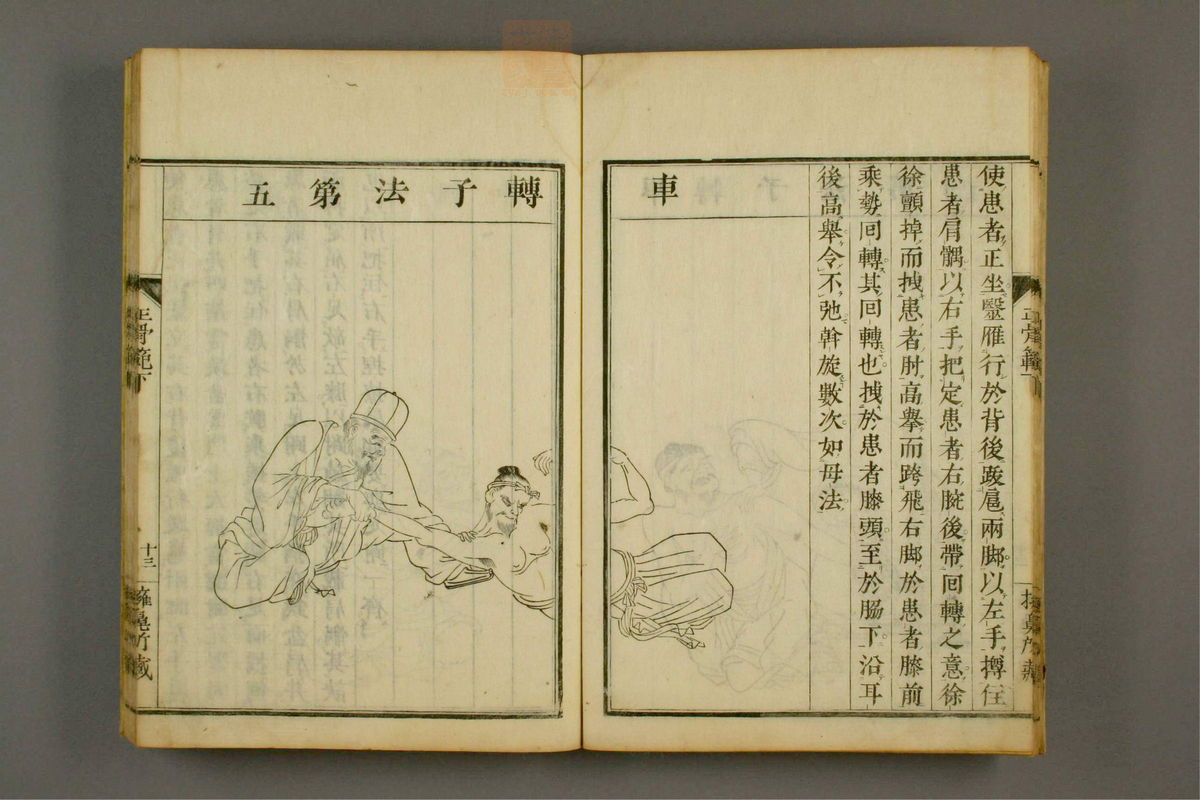 使患者正坐醫雁行於背後踆扈兩脚以左手搏住
患者肩髃以右手把定患者右腕後帶回轉之意徐
徐顫掉而拽患者肘高擧而跨飛右脚於患者膝前
乘勢回轉其回轉也拽於患者膝頭至於脇下沿耳
後高擧令不弛斡旋數次如母法
車
轉子法第五
正骨範下
十三